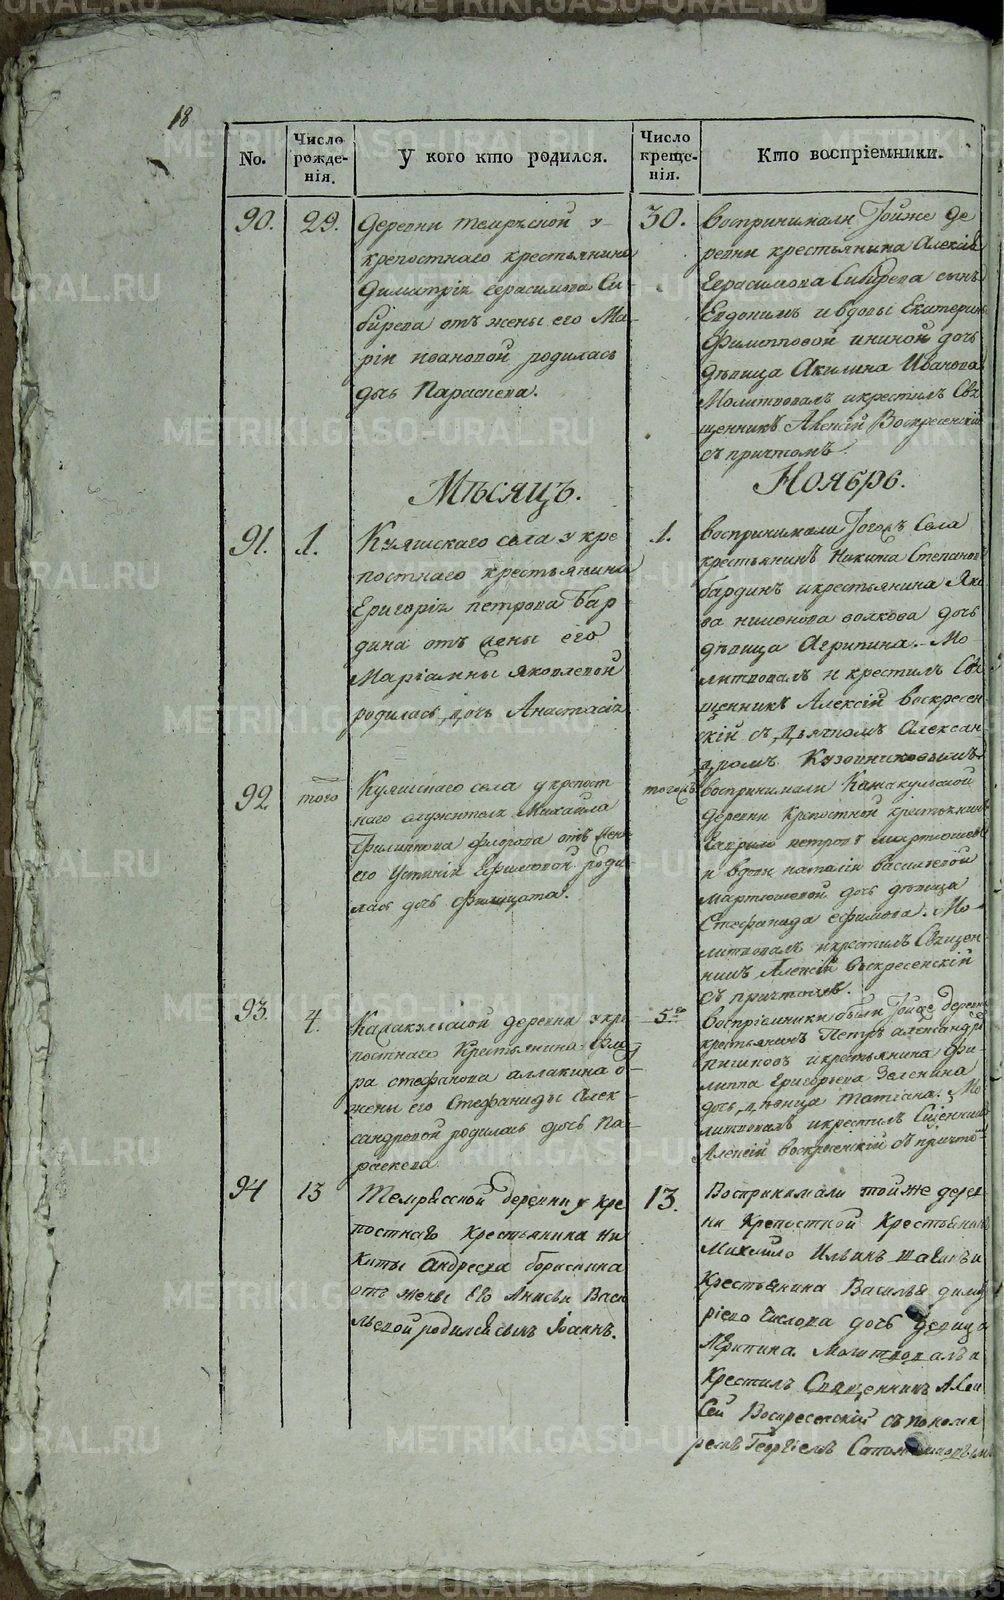 18
No.
Число рожде-нія.
У кого кто родился.
Число креще-нія.
Кто воспріемники.
90.
29.
деревни темрѣской у
крепостнаго крестьянина
Димитрія Герасимова Си
бирева отъ жены его Ма-
ріи Ивановой родилась
дочь Параскева.
30.
воспринимали Тойже де
ревни крестьянина Алексѣя
Герасимова Сибирева сынъ
Евдокимъ и вдовы Екатерины
Филипповой дочь
дѣвица Акилина Иванова
Молитвовалъ и крестилъ Свя
щенникъ Алексій Воскресенскій
съ причтомъ.
Мѣсяцъ.
Ноябрь.
91.
1.
Куяшскаго села у кре
постнаго крестьянина
Григорія петрова Бар
дина отъ жены его
Маріамны Яковлевой
родилась дочь Анастасія
1.
воспринимали Тогожъ Села
крестьянинъ Никита Степановъ
бардинъ и крестьянина Яко
ва волкова дочь
дѣвица Агрипина. Мо
литвовалъ и крестилъ Свя
щенникъ Алексій воскресен
скій съ дьячкомъ Алексан
дромъ
92
того
Куяшскаго села у крепост
наго служителя Михайла
Филипова Федорова отъ жены
его Устиніи Ефимовой роди
лась дочь Фелицата.
тогожъ
воспринимали Каракульской
деревни крепостной крестьянинъ
Гаврило петровъ мартюшевъ
и вдовы наталіи васильевой
мартюшевой дочь дѣвица
Стефанида ефимова. Мо
литвовалъ и крестилъ Священ
никъ Алексій Воскресенскій
съ причтомъ.
93.
4.
Каракульской деревни у кре
постнаго Крестьянина
ра стефанова аллакина о
жены его Стефаниды Алек
сандровой родилась дочь Па-
раскева
5го
воспріемники были Тойже деревни
крестьянинъ Петръ александровъ
и крестьянина Фи
липпа Григорьева Зеленина
дочь дѣвица татіана. Мо
литвовалъ и крестилъ Священникъ
Алексій воскресенскій съ причто
94
13
Темрясской деревни у кре
постнаго Крестьянина Ни
киты Андреева бориснина
отъ жены Его Анисьи Васи
льевой родился сынъ Іоаннъ.
13.
Воспринимали тойже дерев
ни крепостной крестьянинъ
Михайло Ильинъ и
Крестьянина Василья дмит
ріева Числова дочь девица
Агрипина. Молитвовалъ и
Крестилъ Священникъ Алек
сей Воскресенскій съ понома
ремъ Георгіемъ
METRIKI.GASO-URAL.RU